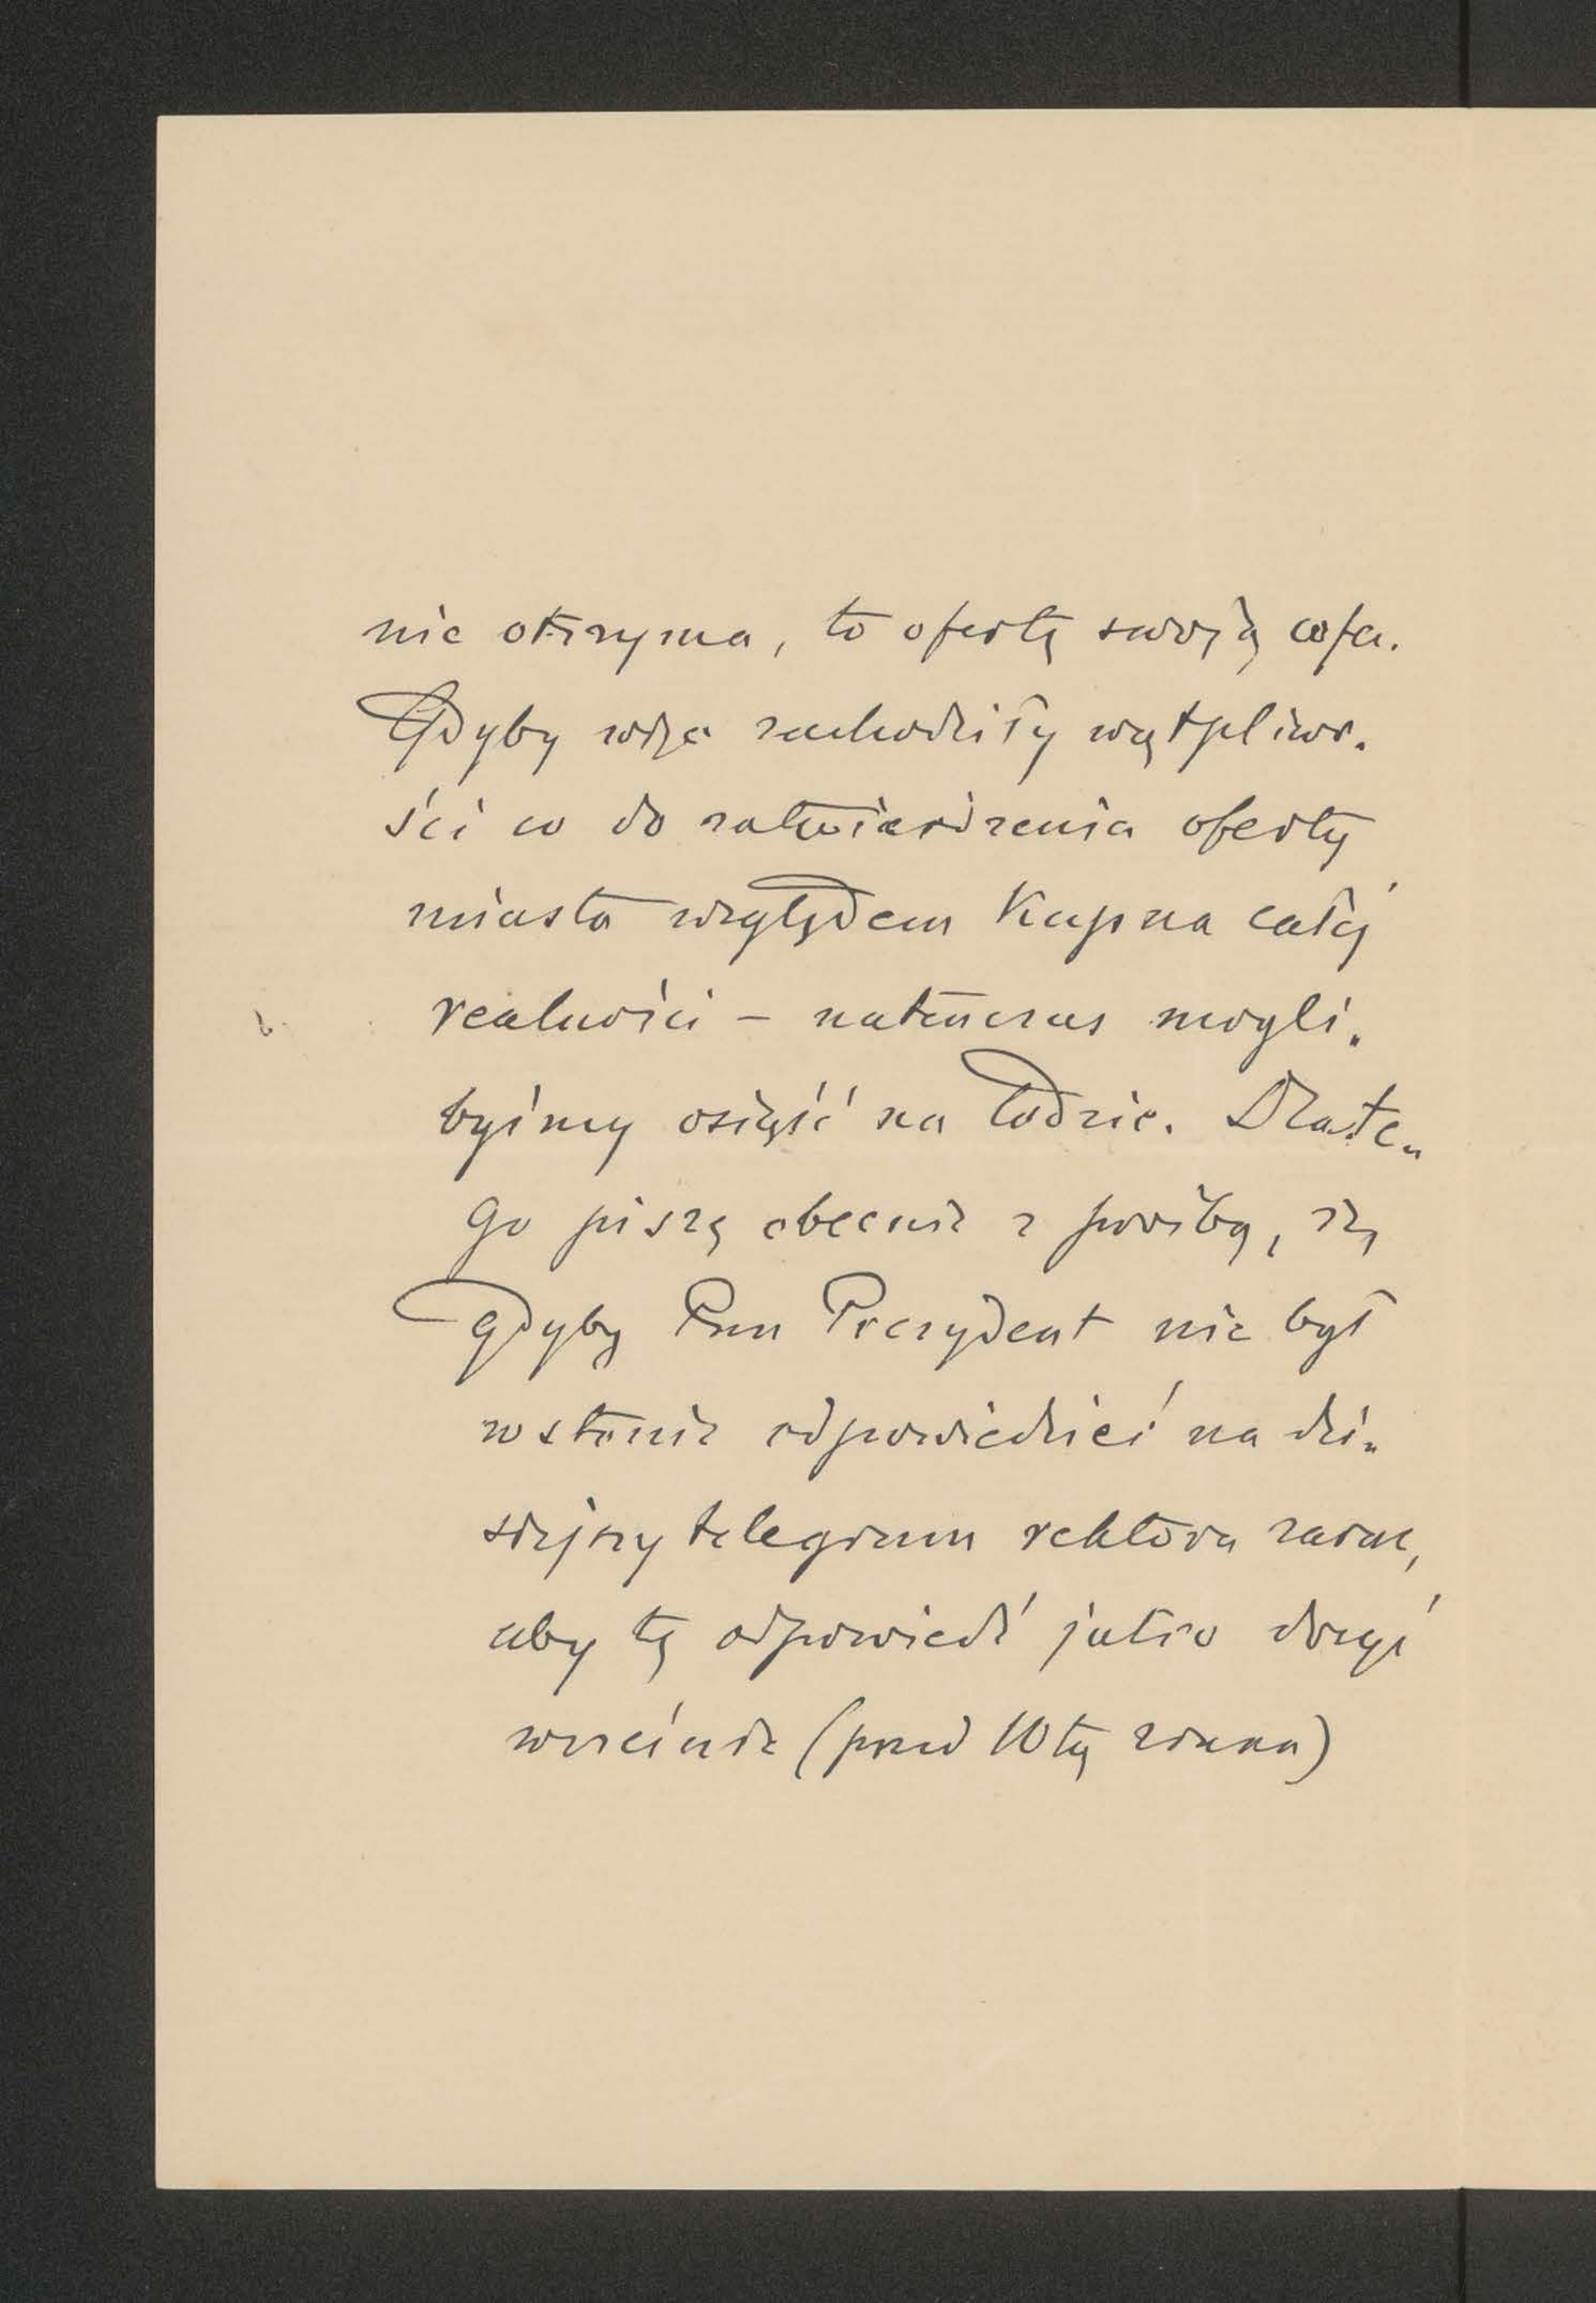 nie otrzyma, to ofertę swoją cofa.
Gdyby więc zachodziły wątpliwo-
ści co do zatwierdzenia oferty
miasta względem kupna całej
realności – natenczas mogli-
byśmy osiąść na lodzie. Dlate-
go piszę obecnie z prośbą, że,
gdyby Pan Prezydent nie był
w stanie odpowiedzieć na dzi-
siejszy telegram rektora zaraz,
aby tę odpowiedź jutro dosyć
wcześnie (przed 10tą zrana)